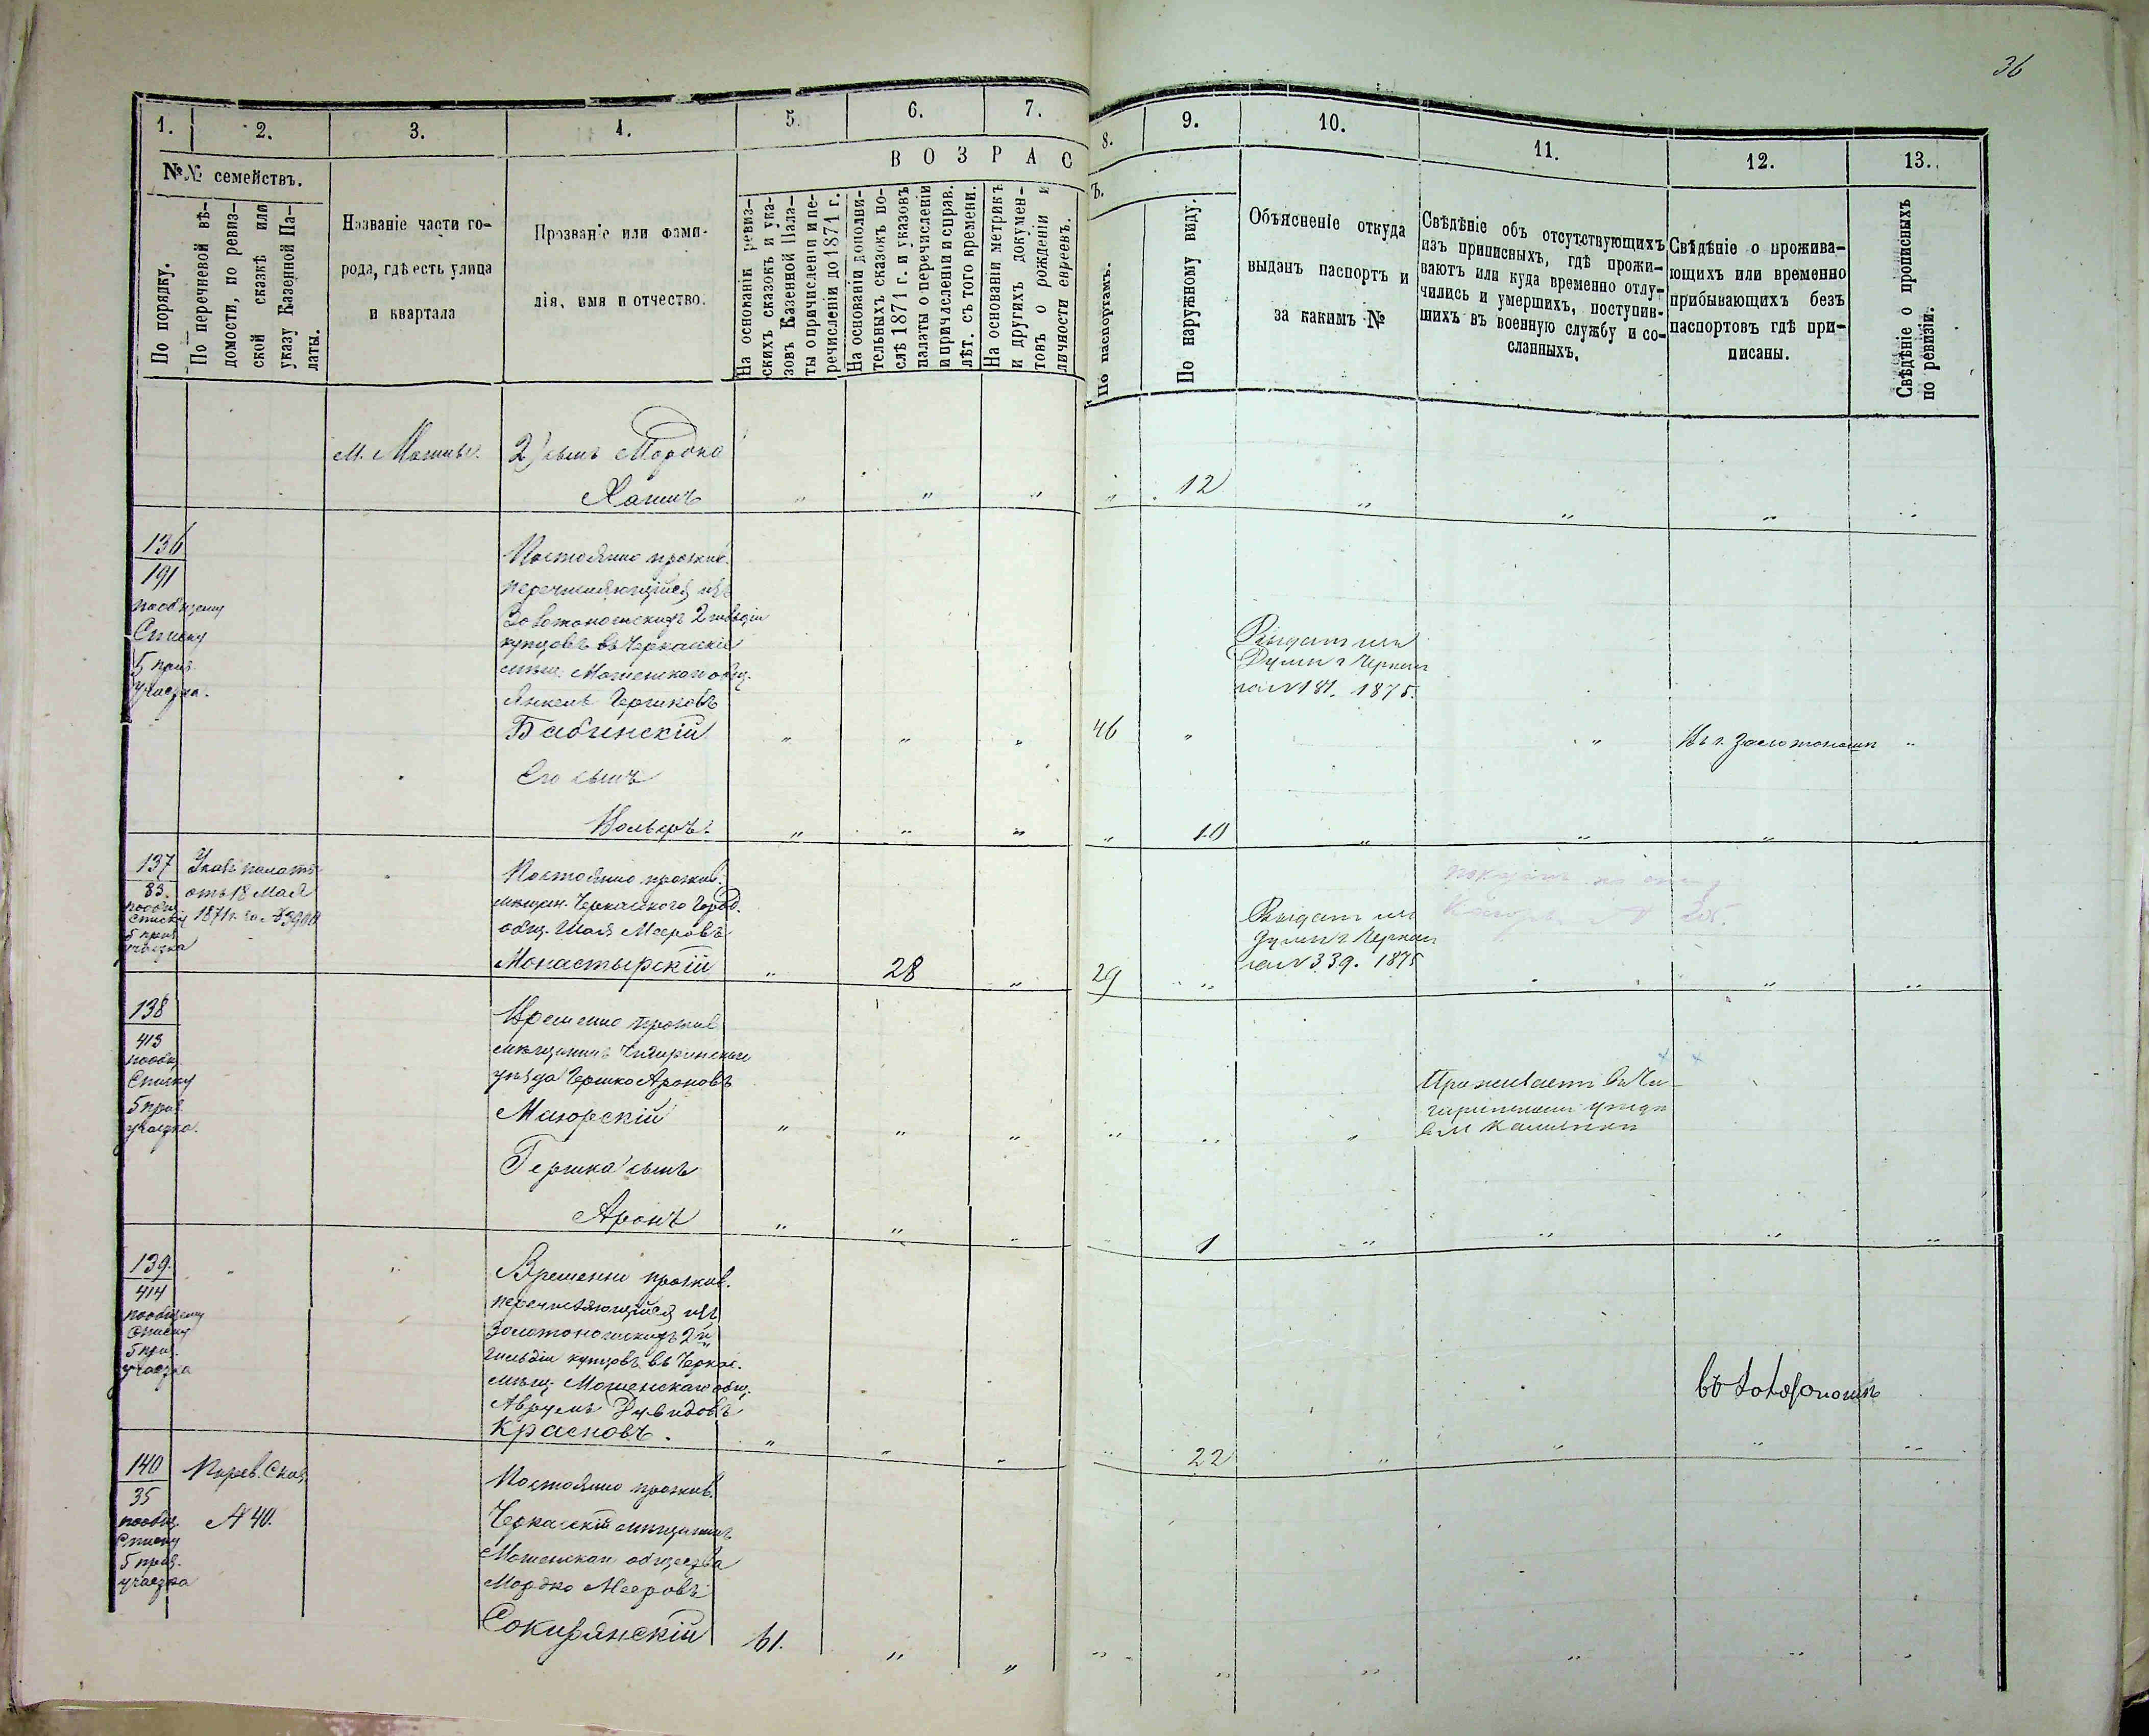 36
1.
2.
3.
4.
5.
6.
7.
8.
9.
10.
11.
12.
13.
№№ семействъ.
По порядку.
По перечневой вѣ-
домости, по ревиз-
ской сказкѣ или
указу Казенной Па-
латы.
Названіе части го-
рода, гдѣ есть улица
и квартала
Прозваніе или фами-
лія, имя и отчество.
ВОЗРАС
Ъ.
На основаніи ревиз-
скихъ сказокъ и ука-
зовъ Казенной Пала-
ты о причисленіи и пе-
речисленіи до 1871 г.
На основаніи дополни-
тельныхъ сказокъ по-
слѣ 1871 г. и указовъ
палаты о перечисленіи
и причисленіи и справ.
лѣт. съ того времени.
На основаніи метрикъ
и другихъ докумен-
товъ о рожденіи и
личности евреевъ.
По паспортамъ.
По наружному виду.
Объясненіе откуда
выданъ паспортъ и
за какимъ №
Свѣдѣніе объ отсутствующихъ
изъ приписныхъ, гдѣ прожи-
ваютъ или куда временно отлу-
чились и умершихъ, поступив-
шихъ въ военную службу и со-
сланныхъ.
Свѣдѣніе о прожива-
ющихъ или временно
прибывающихъ безъ
паспортовъ гдѣ при-
писаны.
Свѣдѣніе о прописныхъ
по ревизіи.
М. Мошны.
2) сынъ Мордка
Хаимъ " " " " 12 " " " "
136
191
пообщему
Списку
5 приз.
участка.
Постоянно прожив.
перечисляющійся изъ
Золотоношскихъ 2 гильдіи
купцовъ въ Черкаскіе
мѣщ. Мошенскаго общ.
Янкель Гершковъ
Бабинскій " " " 46 "
Выдат изъ
Думы г Черкасъ
за № 181. 1875.
" Въ г. Золотоноши "
Его сынъ
Вольфъ. " " " " 10 " " "
137
83.
пообщ
списку
5 приз
участка
Указъ палаты
отъ 18 Мая
1871 г. за №3900
Постоянно прожив.
мѣщан. Черкасского Город.
общ. Шая Мееровъ
Монастырскій " 28 " 29 "
Выдат изъ
думы г Черкас
за №339. 1875
" "
138
413
пообщ
Списку
5 приз
участка.
Временно прожив
мѣщанинъ Чигиринскаго
уѣзда Гершко Ароновъ
Маюрскій " " " " " "
Проживаетъ въ Чи-
гиринскомъ уѣздѣ
в м Каменки
Гершка сынъ
Аронъ " " " " 1 " " " "
139.
414
пообщему
списку
5 приз.
участка
Временно прожив.
перечисляющійся изъ
Золотоношскихъ 2й
гильдіи купцовъ въ Черкас.
мѣщ. Мошенскаго общ.
Аврумъ Дувидовъ
Красновъ. " " " " 22 " " " "
въ Золотоношѣ
140
35
пообщ.
Списку
5 приз.
участка
По рев. Сказ.
№ 40.
Постоянно прожив.
Черкасскій мѣщанинъ
Мошенскаго общества
Мордко Мееровъ
Сокирянскій 61. " " " " " " " "